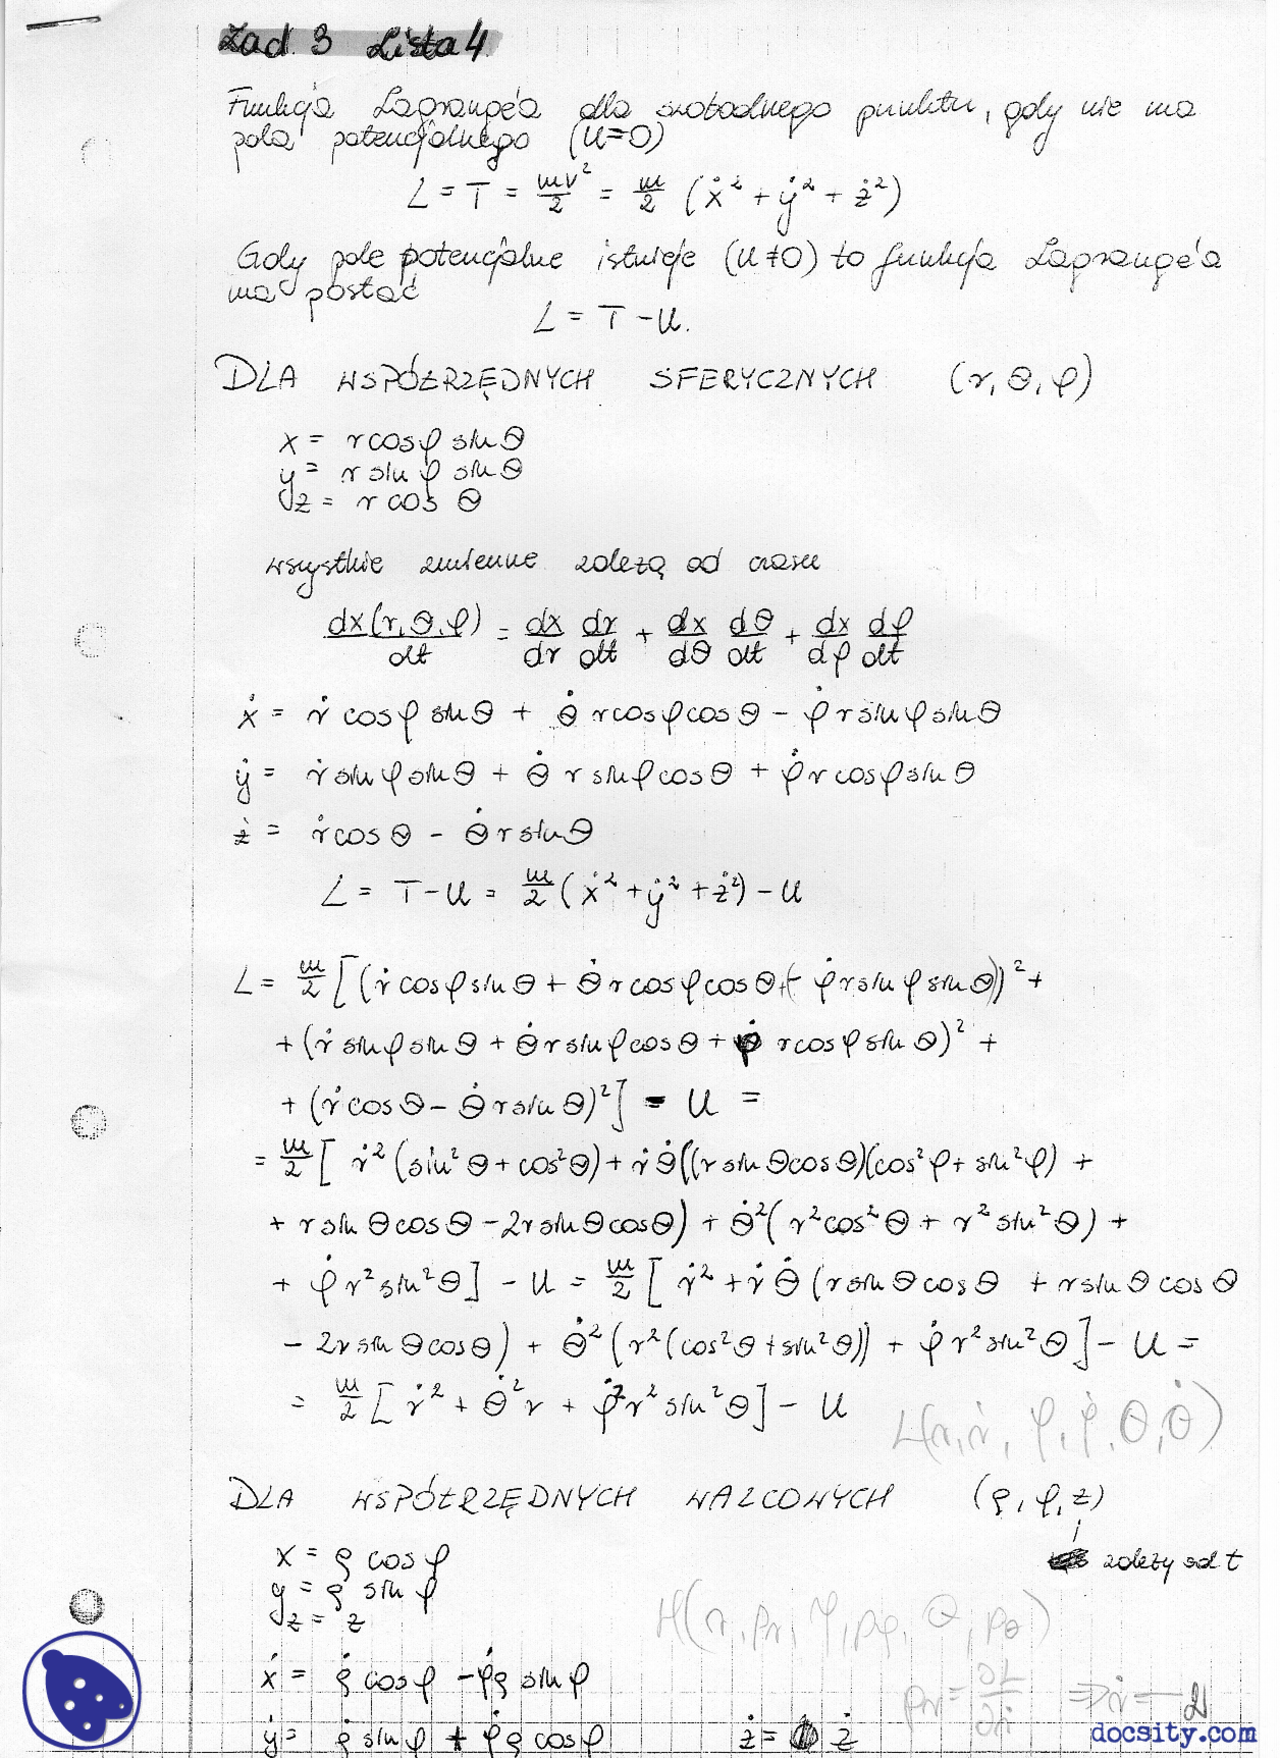 Zad. 3 Lista 4
Funkcja Lagrange'a dla swobodnego punktu, gdy nie ma
pola potencjalnego (U=0)
L = T = mv²/2 = m/2 (ẋ² + ẏ² + ż²)
Gdy pole potencjalne istnieje (U≠0) to funkcja Lagrange'a
ma postać
L = T - U.
DLA WSPÓŁRZĘDNYCH SFERYCZNYCH (r, θ, φ)
x = r cosφ sinθ
y = r sinφ sinθ
z = r cos θ
wszystkie zmienne zależą od czasu
dx(r,θ,φ)/dt = dx/dr dr/dt + dx/dθ dθ/dt + dx/dφ dφ/dt
ẋ = ṙ cosφ sinθ + θ̇ r cosφ cosθ - φ̇ r sinφ sinθ
ẏ = ṙ sinφ sinθ + θ̇ r sinφ cosθ + φ̇ r cosφ sinθ
ż = ṙ cosθ - θ̇ r sinθ
L = T - U = m/2 (ẋ² + ẏ² + ż²) - U
L = m/2 [(ṙ cosφ sinθ + θ̇ r cosφ cosθ + (- φ̇ r sinφ sinθ))² +
+ (ṙ sinφ sinθ + θ̇ r sinφ cosθ + φ̇ r cosφ sinθ)² +
+ (ṙ cosθ - θ̇ r sinθ)²] - U =
= m/2 [ ṙ² (sin²θ + cos²θ) + ṙ θ̇ ((r sinθ cosθ)(cos²φ + sin²φ) +
+ r sinθ cosθ - 2r sinθ cosθ) + θ̇² (r² cos²θ + r² sin²θ) +
+ φ̇ r² sin²θ] - U = m/2 [ ṙ² + ṙ θ̇ (r sinθ cosθ + r sinθ cosθ
- 2r sinθ cosθ) + θ̇² (r² (cos²θ + sin²θ)) + φ̇ r² sin²θ] - U =
= m/2 [ ṙ² + θ̇² r + φ̇² r² sin²θ] - U
L(r, ṙ, φ, φ̇, θ, θ̇)
DLA WSPÓŁRZĘDNYCH WALCOWYCH (ρ, φ, z)
zależy od t
x = ρ cosφ
y = ρ sinφ
z = z
H(r, pr, φ, pφ, θ, pθ)
ẋ = ρ̇ cosφ - φ̇ρ sinφ
pr = ∂L/∂ṙ ⇒ ṙ =
2
ẏ = ρ̇ sinφ + φ̇ρ cosφ ż = ż
docsity.com